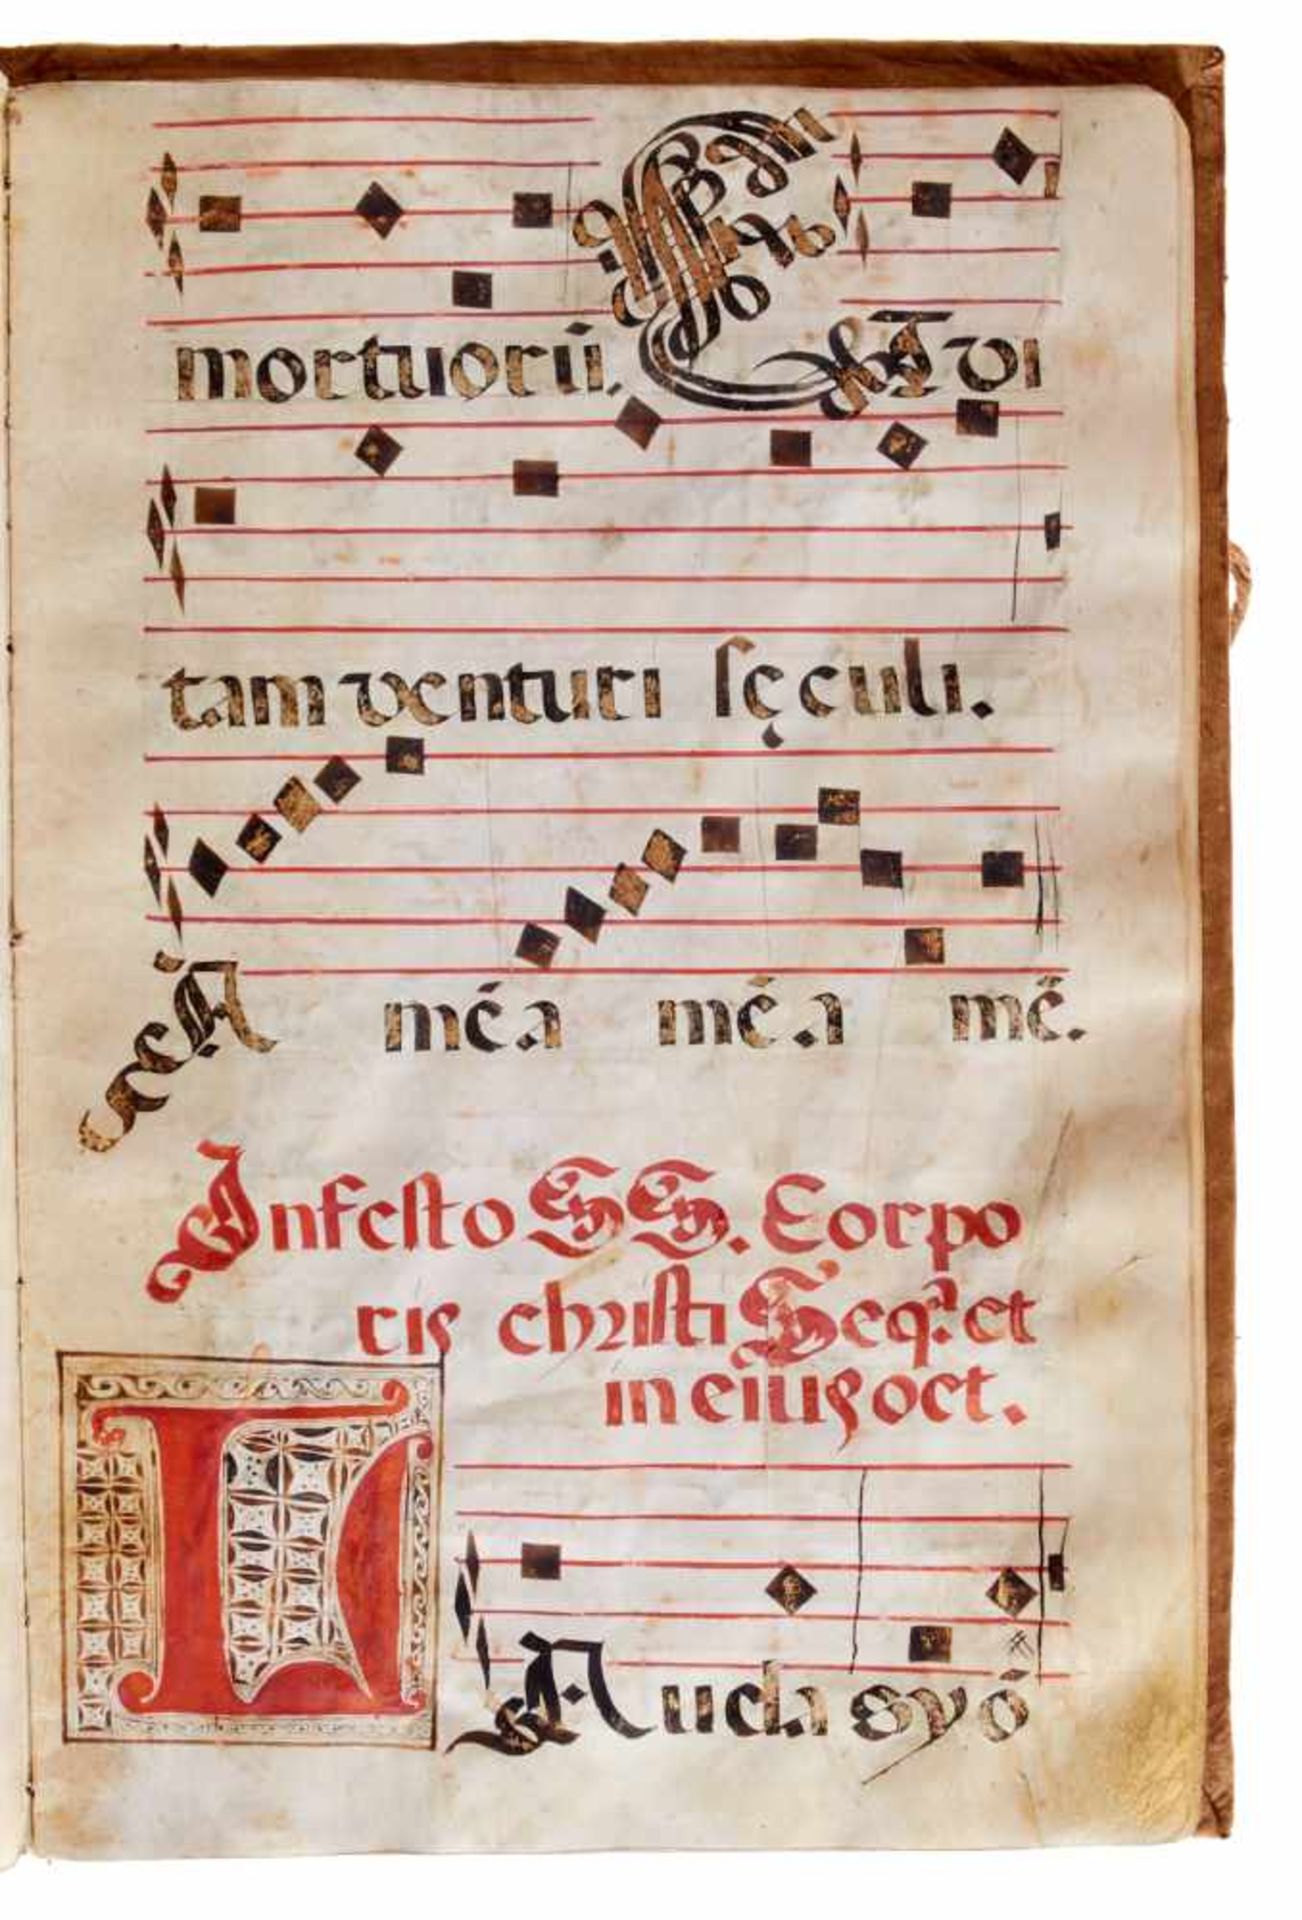 mortuorũ. Et vi
tam venturi sęculi.
A mẽ.a mẽ.a mẽ.
In festo SS. Corpo
ris christi Seq.ª et
in eius oct.
LAuda syõ